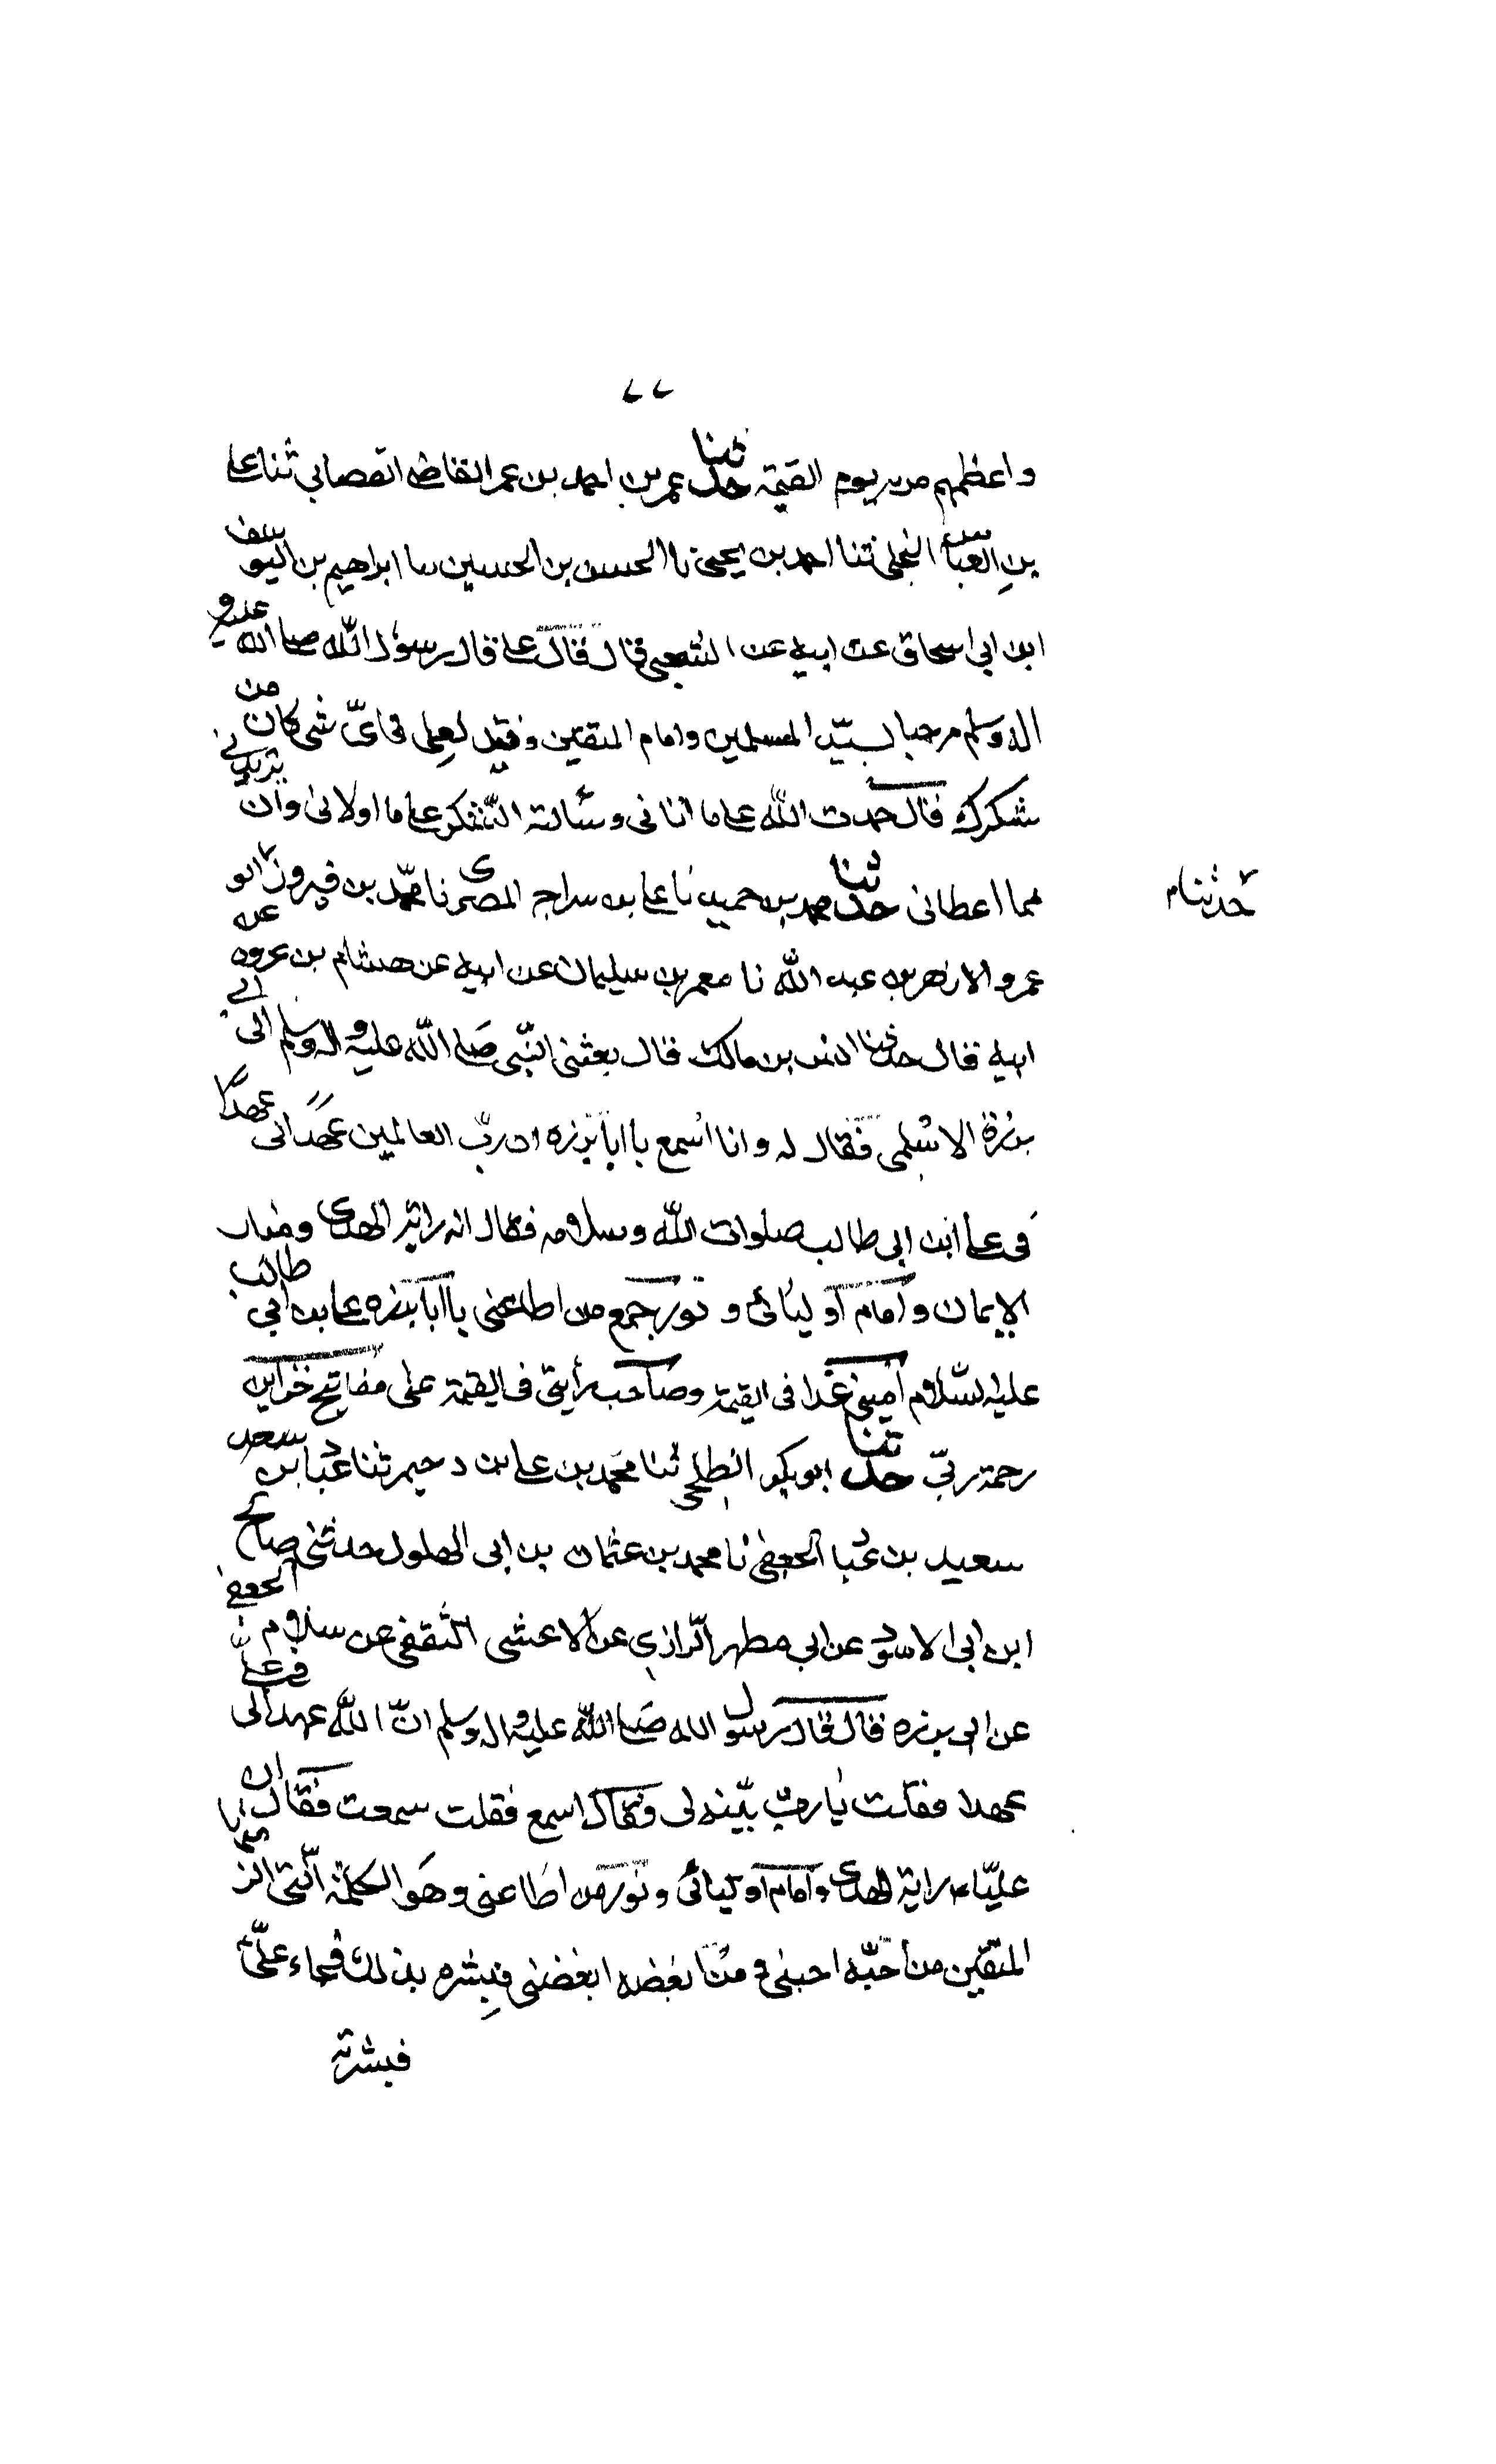 ٧٧
واعظمهم مزيه يوم القيمة حدثنا عمر بن احمد بن عمر القاضى القصابي ثنا على
بن العباس البجلى ثنا احمد بن يحيى نا الحسن بن الحسين نا ابراهيم بن اليوسف
ابن ابى اسحاق عن ابيه عن الشعبى قال قال على قال رسول الله صلى الله عليه و
اله وسلم مرحبا بسيد المسلمين وامام المتقين وفقيل لعلى فاىّ شى كان من
شكرك فقال حمدت الله على ما اتانى وسئالته الشكر على ما اولانى وان يزيدنى
مما اعطانى حدثنا محمد بن حميد نا على بن سراج المصرى نا محمد بن فيروز نا ابو
حدثنا م
عمرو الازهر بن عبد الله نا معمر بن سليمان عن ابيه عن هشام بن عروه عن
ابيه قال حدثنا انس بن مالك قال بعثنى النبى صلى الله عليه و اله وسلم الى ابى
برزة الاسلمى فقال له وانا اسمع يا ابا برزه ان ربّ العالمين عهد الى عهدًا
فى على ابن ابى طالب صلوات الله وسلامه فقال انه راية الهدى ومنار
الايمان وامام اوليائى و نور جمع من اطاعنى يا ابا برزه على بن ابى طالب
عليه السلام امينى غدا فى القيمة وصاحب رأيتى فى القيمة على مفاتيح خزاين
رحمة ربّى حدثنا ابو بكر الطلحى ثنا محمد بن على بن دحيم ثنا عباد بن سعد
سعيد بن عباد الجعفى نا محمد بن عثمان بن ابى الهلول حدثنى صالح
ابن ابى الاسود عن ابى مطهر الرازى عن الاعشى الثقفى عن سلام الجعفى
عن ابى برزه قال قال رسول الله صلى الله عليه و اله وسلم انّ الله عهد الى فى على
عهدا فقلت يا ربّ بيّنه لى فقال اسمع فقلت سمعت فقال ان
عليّا راية الهدى وامام اوليائى ونور من اطاعنى وهو الكلمة الّتى الزمتها
المتقين من احبّه احبنى و من ابغضه ابغضنى فبشره بذلك فجاء علىّ
فبشرته